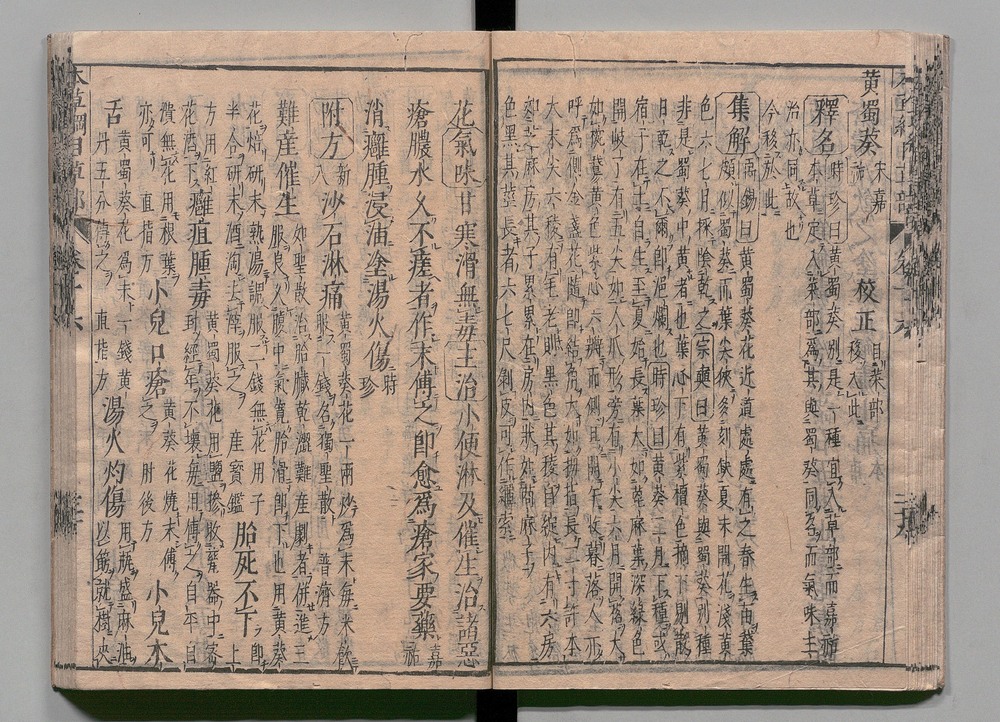 黄蜀葵 宋嘉祐 校正 自菜部移入此
釋名 時珍曰黄蜀葵別是一種宜入草部而嘉祐
本草定入菜部爲其與蜀葵同名而氣味主
治亦同故也
今移於此
集解 禹錫曰黄蜀葵花近道處處有之春生苗葉
頗似蜀葵而葉尖狹多刻缺夏末開花淺黄
色六七月採陰乾之宗奭曰黄蜀葵與蜀葵別種
非是蜀葵中黄者也葉心下有紫檀色摘下剔散
日乾之不爾即浥爛也時珍曰黄葵二月下種或
宿子在土自生至夏始長葉大如蓖麻葉深緑色
開岐丫有五尖如人爪形旁有小尖六月開花大
如椀鵞黄色紫心六瓣而側旦開午收暮落人亦
呼爲側金盞花隨即結角大如拇指長二寸許本
大末尖六稜有毛老則黒色其稜自綻内有六房
如芝麻房其子累累在房内狀如苘麻子
色黒其莖長者六七尺剥皮可作繩索
花氣味甘寒滑無毒主治小便淋及催生治諸惡
瘡膿水久不瘥者作末傅之即愈爲瘡家要藥 嘉祐
消癰腫浸油塗湯火傷 時珍
附方 新八 沙石淋痛 黄蜀葵花一兩炒爲末毎米飲
服一錢名獨聖散 普濟方
難産催生 如聖散治胎臓乾濇難産劇者併進三
服良久腹中氣寛胎滑即下也用黄葵
花焙研末熟湯調服二錢無花用子
半合研末酒淘去滓服之 産寶鑑 胎死不下 即上
方用紅花酒下 癰疽腫毒 黄蜀葵花用鹽摻收瓷器中密
封經年不壊毎用傅之自平自
潰無花用根葉亦可 直指方 小兒口瘡 黄葵花燒末傅之 肘後方 小兒木
舌 黄蜀葵花爲末一錢黄
丹五分傅之 直指方 湯火灼傷 用瓶盛麻油
以筯就樹夾